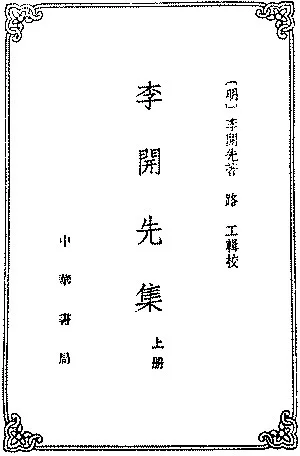 〔明〕李開先著 路 工輯校
李開先集
上册
中華書局